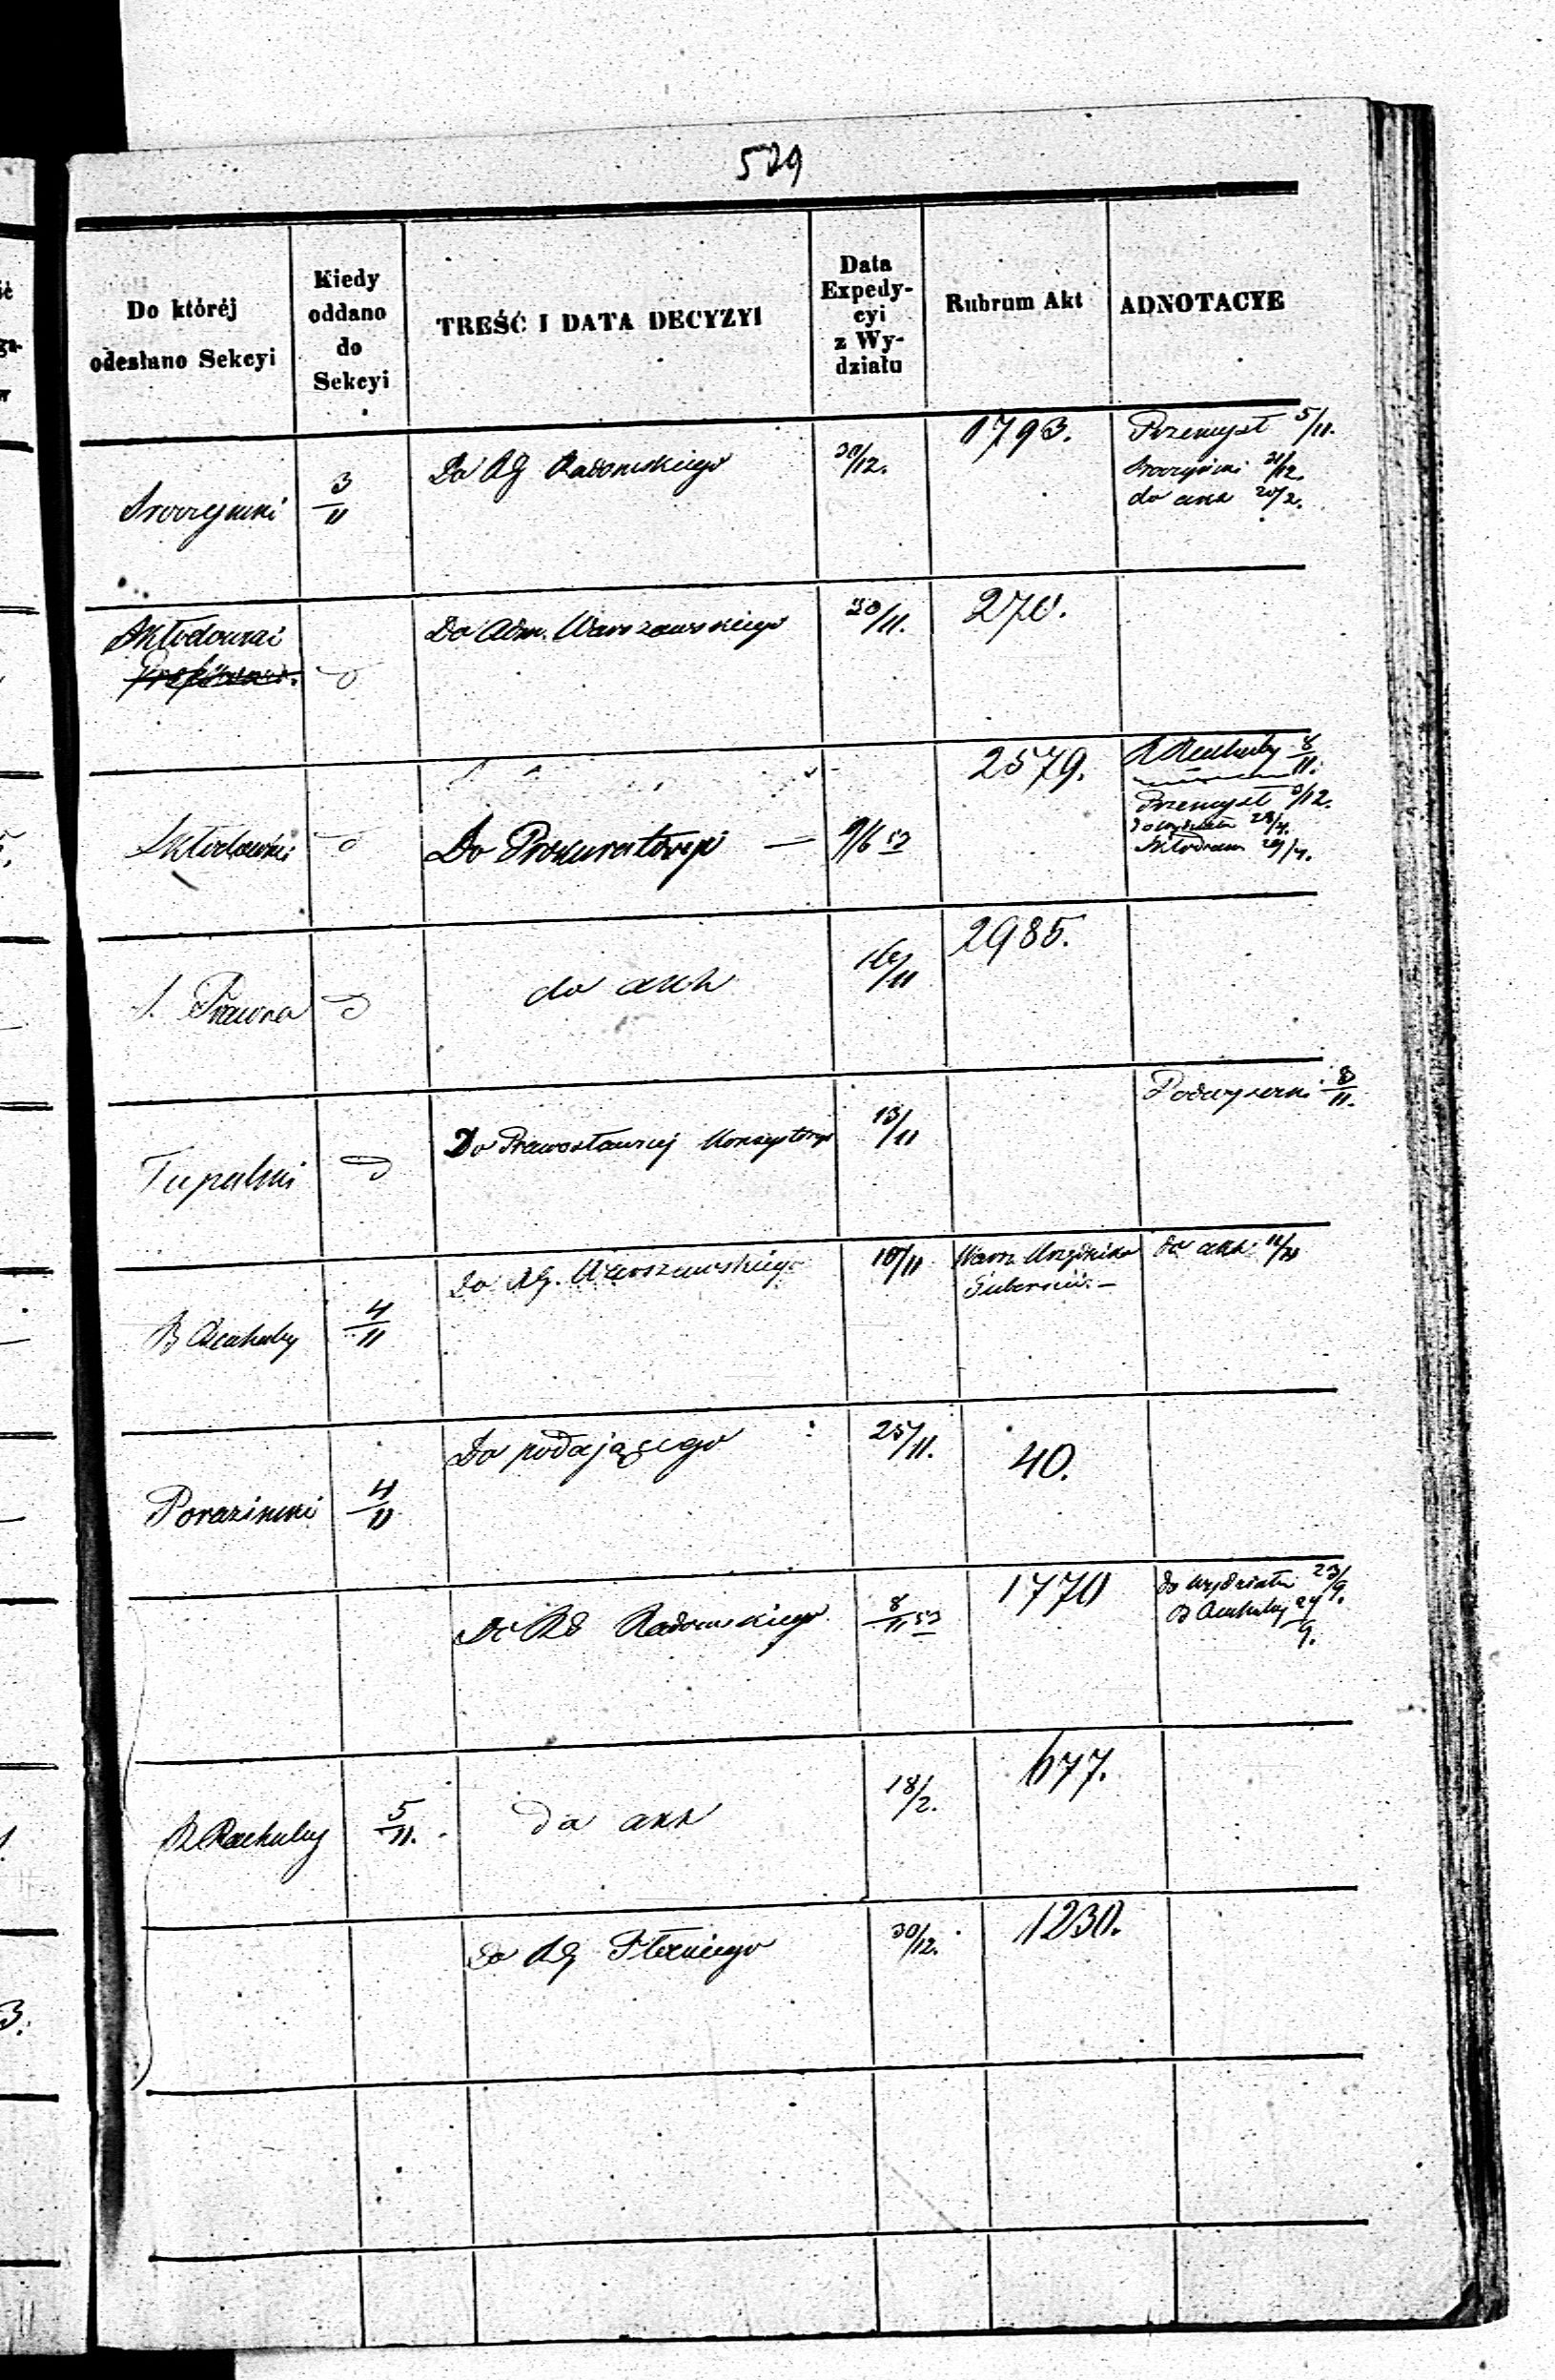 529
Do któréj
odesłano Sekcyi
Kiedy
oddano
do
Sekcyi
TREŚĆ I DATA DECYZYI
Data
Expedy-
cyi
z Wy-
działu
Rubrum Akt
ADNOTACYE
3/11
Do RG Radomskiego
30/12.
1793.
Przemysł 5/11.
31/12.
do akt 20/2.
Skłodowski
Do Adm. Warszawskiego
30/11.
270.
Skłodowski
Do Prokuratoryi —
9/6 53
2579.
R Rachuby 8/11.
Przemysł 3/12.
do wydziału 28/4.
29/4.
S. Prawna
do akt
16/11
2985.
Tupalski
Do Prawosławnej Konsystoryi
13/11
Podwysocki 8/11.
B Rachuby
4/11
Do RG. Warszawskiego
10/11
Warsz. Urzędnika
Gubernii. —
do akt 11/11
Poraziński
4/11
Do podającego
25/11.
40.
Do RG Radomskiego
8/11 53
1770
do Wydziału 23/9.
B Rachuby 24/9.
B Rachuby
5/11.
do akt
18/2.
677.
do RG Płockiego
30/12.
1230.